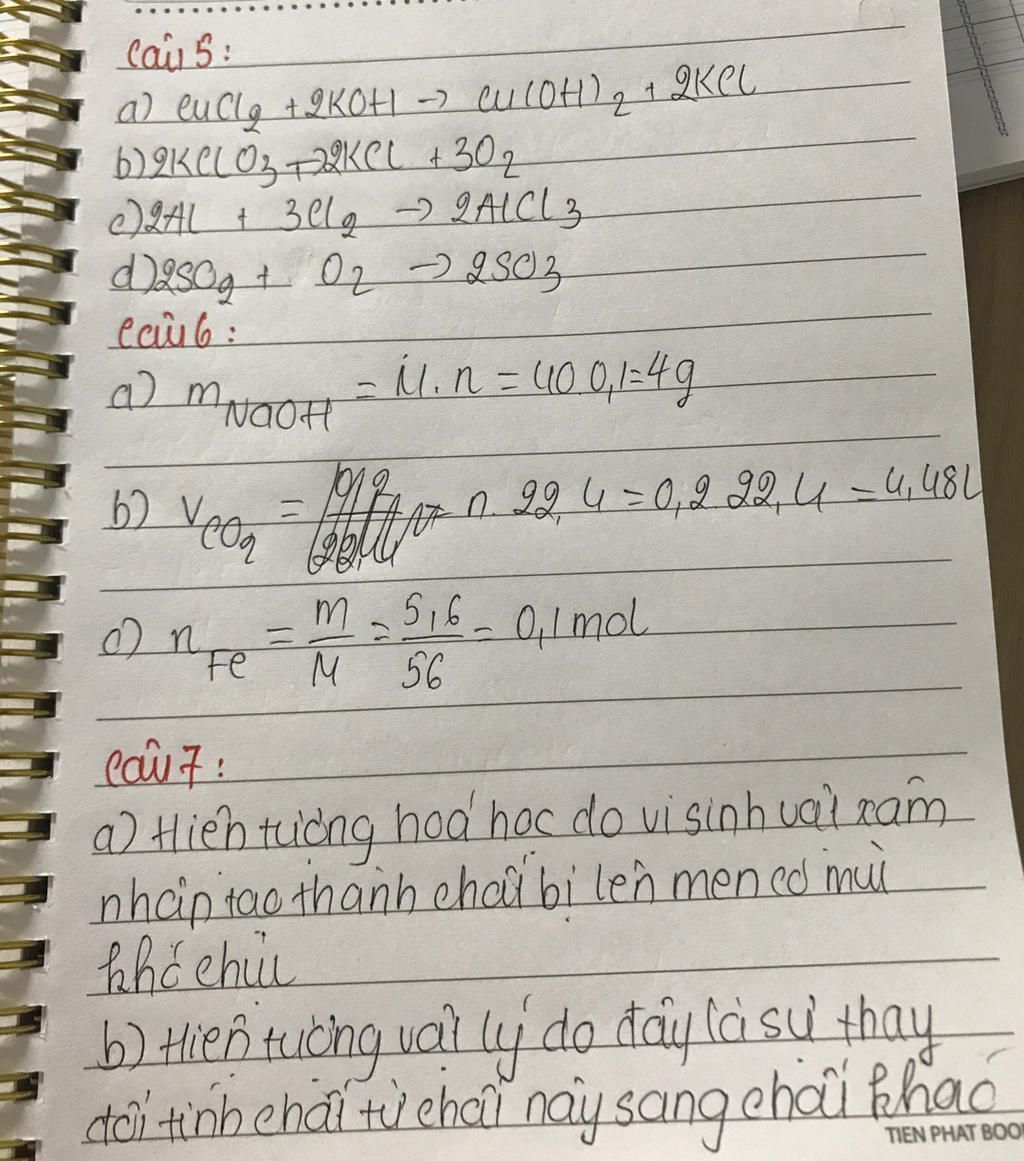 Câu 5:
a) CuCl2 + 2KOH → Cu(OH)2 + 2KCl
b) 2KClO3 → 2KCl + 3O2
c) 2Al + 3Cl2 → 2AlCl3
d) 2SO2 + O2 → 2SO3
Câu 6:
a) mNaOH = M.n = 40.0,1=4g
b) VCO2 = n. 22,4 = 0,2.22,4 = 4,48L
c) nFe = m/M = 5,6/56 = 0,1mol
Câu 7:
a) Hiện tượng hoá học do vi sinh vật xâm
nhập tạo thành chất bị lên men có mùi
khó chịu
b) Hiện tượng vật lý do đây là sự thay
đổi tính chất từ chất này sang chất khác
TIEN PHAT BOO